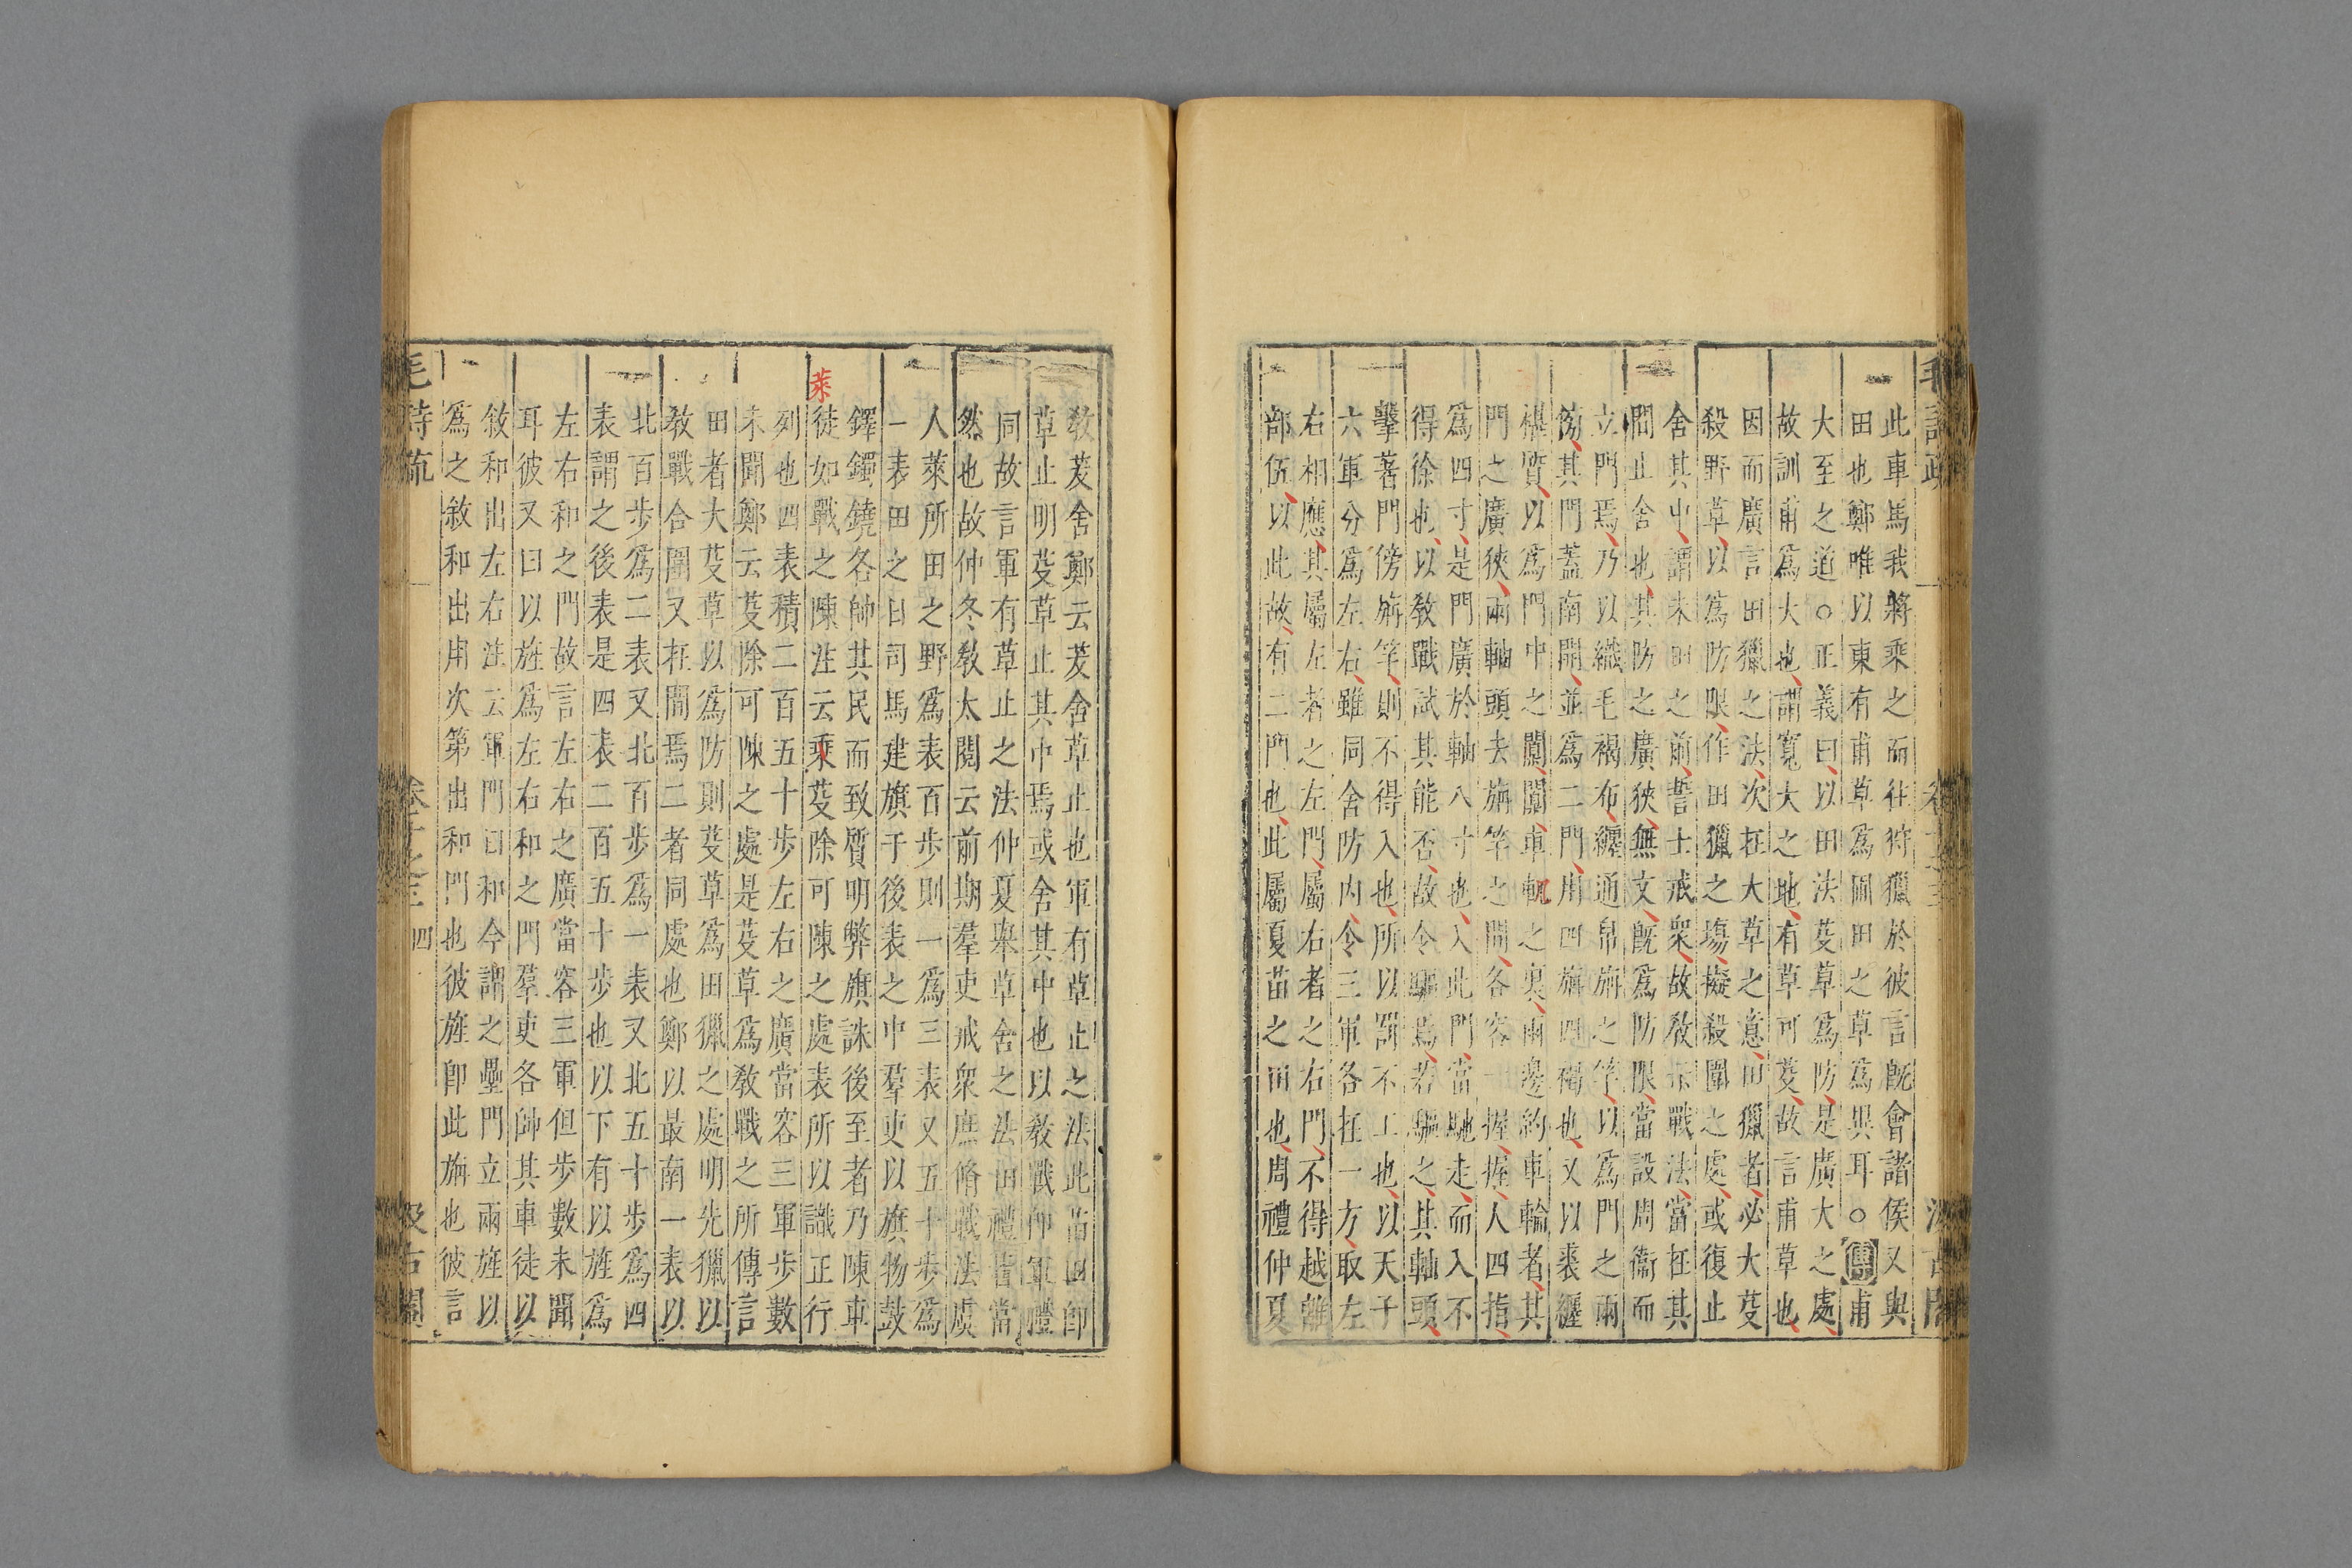 此車馬我將乘之而往狩獵於彼言旣會諸侯又與
田也鄭唯以東有甫草爲圃田之草爲異耳○傳甫
大至之道○正義曰以田法芟草爲防是廣大之處
故訓甫爲大也謂寬大之地有草可芟故言甫草也
因而廣言田獵之法次在大草之意田獵者必大芟
殺野草以爲防限作田獵之塲擬殺圍之處或復止
舍其中謂未田之前誓士戒衆故敎示戰法當在其
間止舍也其防之廣狹無文旣爲防限當設周衞而
立門焉乃以織毛褐布纏通帛旃之竿以爲門之兩
傍其門蓋南開並爲二門用四旃四褐也又以裘纏
椹質以爲門中之闑闑車軌之裏兩邊約車輪者其
門之廣狹兩軸頭去旃竿之間各容一握握人四指
爲四寸是門廣於軸八寸也入此門當馳走而入不
得徐也以敎戰試其能否故令驅焉若驅之其軸頭
擊著門傍旃竿則不得入也所以罰不工也以天子
六軍分爲左右雖同舍防内令三軍各在一方取左
右相應其屬左者之左門屬右者之右門不得越離
部伍以此故有二門也此屬夏苗之田也周禮仲夏
敎茇舍鄭云茇舍草止也軍有草止之法此苗田卽
草止明芟草止其中焉或舍其中也以敎戰卽軍禮
同故言軍有草止之法仲夏舉草舍之法田禮皆當
然也故仲冬敎大閱云前期羣吏戒衆庶脩戰法虞
人萊所田之野爲表百步則一爲三表又五十步爲
一表田之日司馬建旗于後表之中羣吏以旗物鼓
鐸鐲鐃各帥其民而致質明弊旗誅後至者乃陳車
徒如戰之陳注云乘芟除可陳之處表所以識正行
萊
列也四表積二百五十步左右之廣當容三軍步數
未聞鄭云芟除可陳之處是芟草爲敎戰之所傳言
田者大芟草以爲防則芟草爲田獵之處明先獵以
敎戰合圍又在間焉二者同處也鄭以最南一表以
北百步爲二表又北百步爲一表又北五十步爲四
表謂之後表是四表二百五十步也以下有以旌爲
左右和之門故言左右之廣當容三軍但步數未聞
耳彼又曰以旌爲左右和之門羣吏各帥其車徒以
敘和出左右注云軍門曰和今謂之壘門立兩旌以
爲之敘和出用次第出和門也彼旌卽此旃也彼言
毛詩疏
四
汲古閣